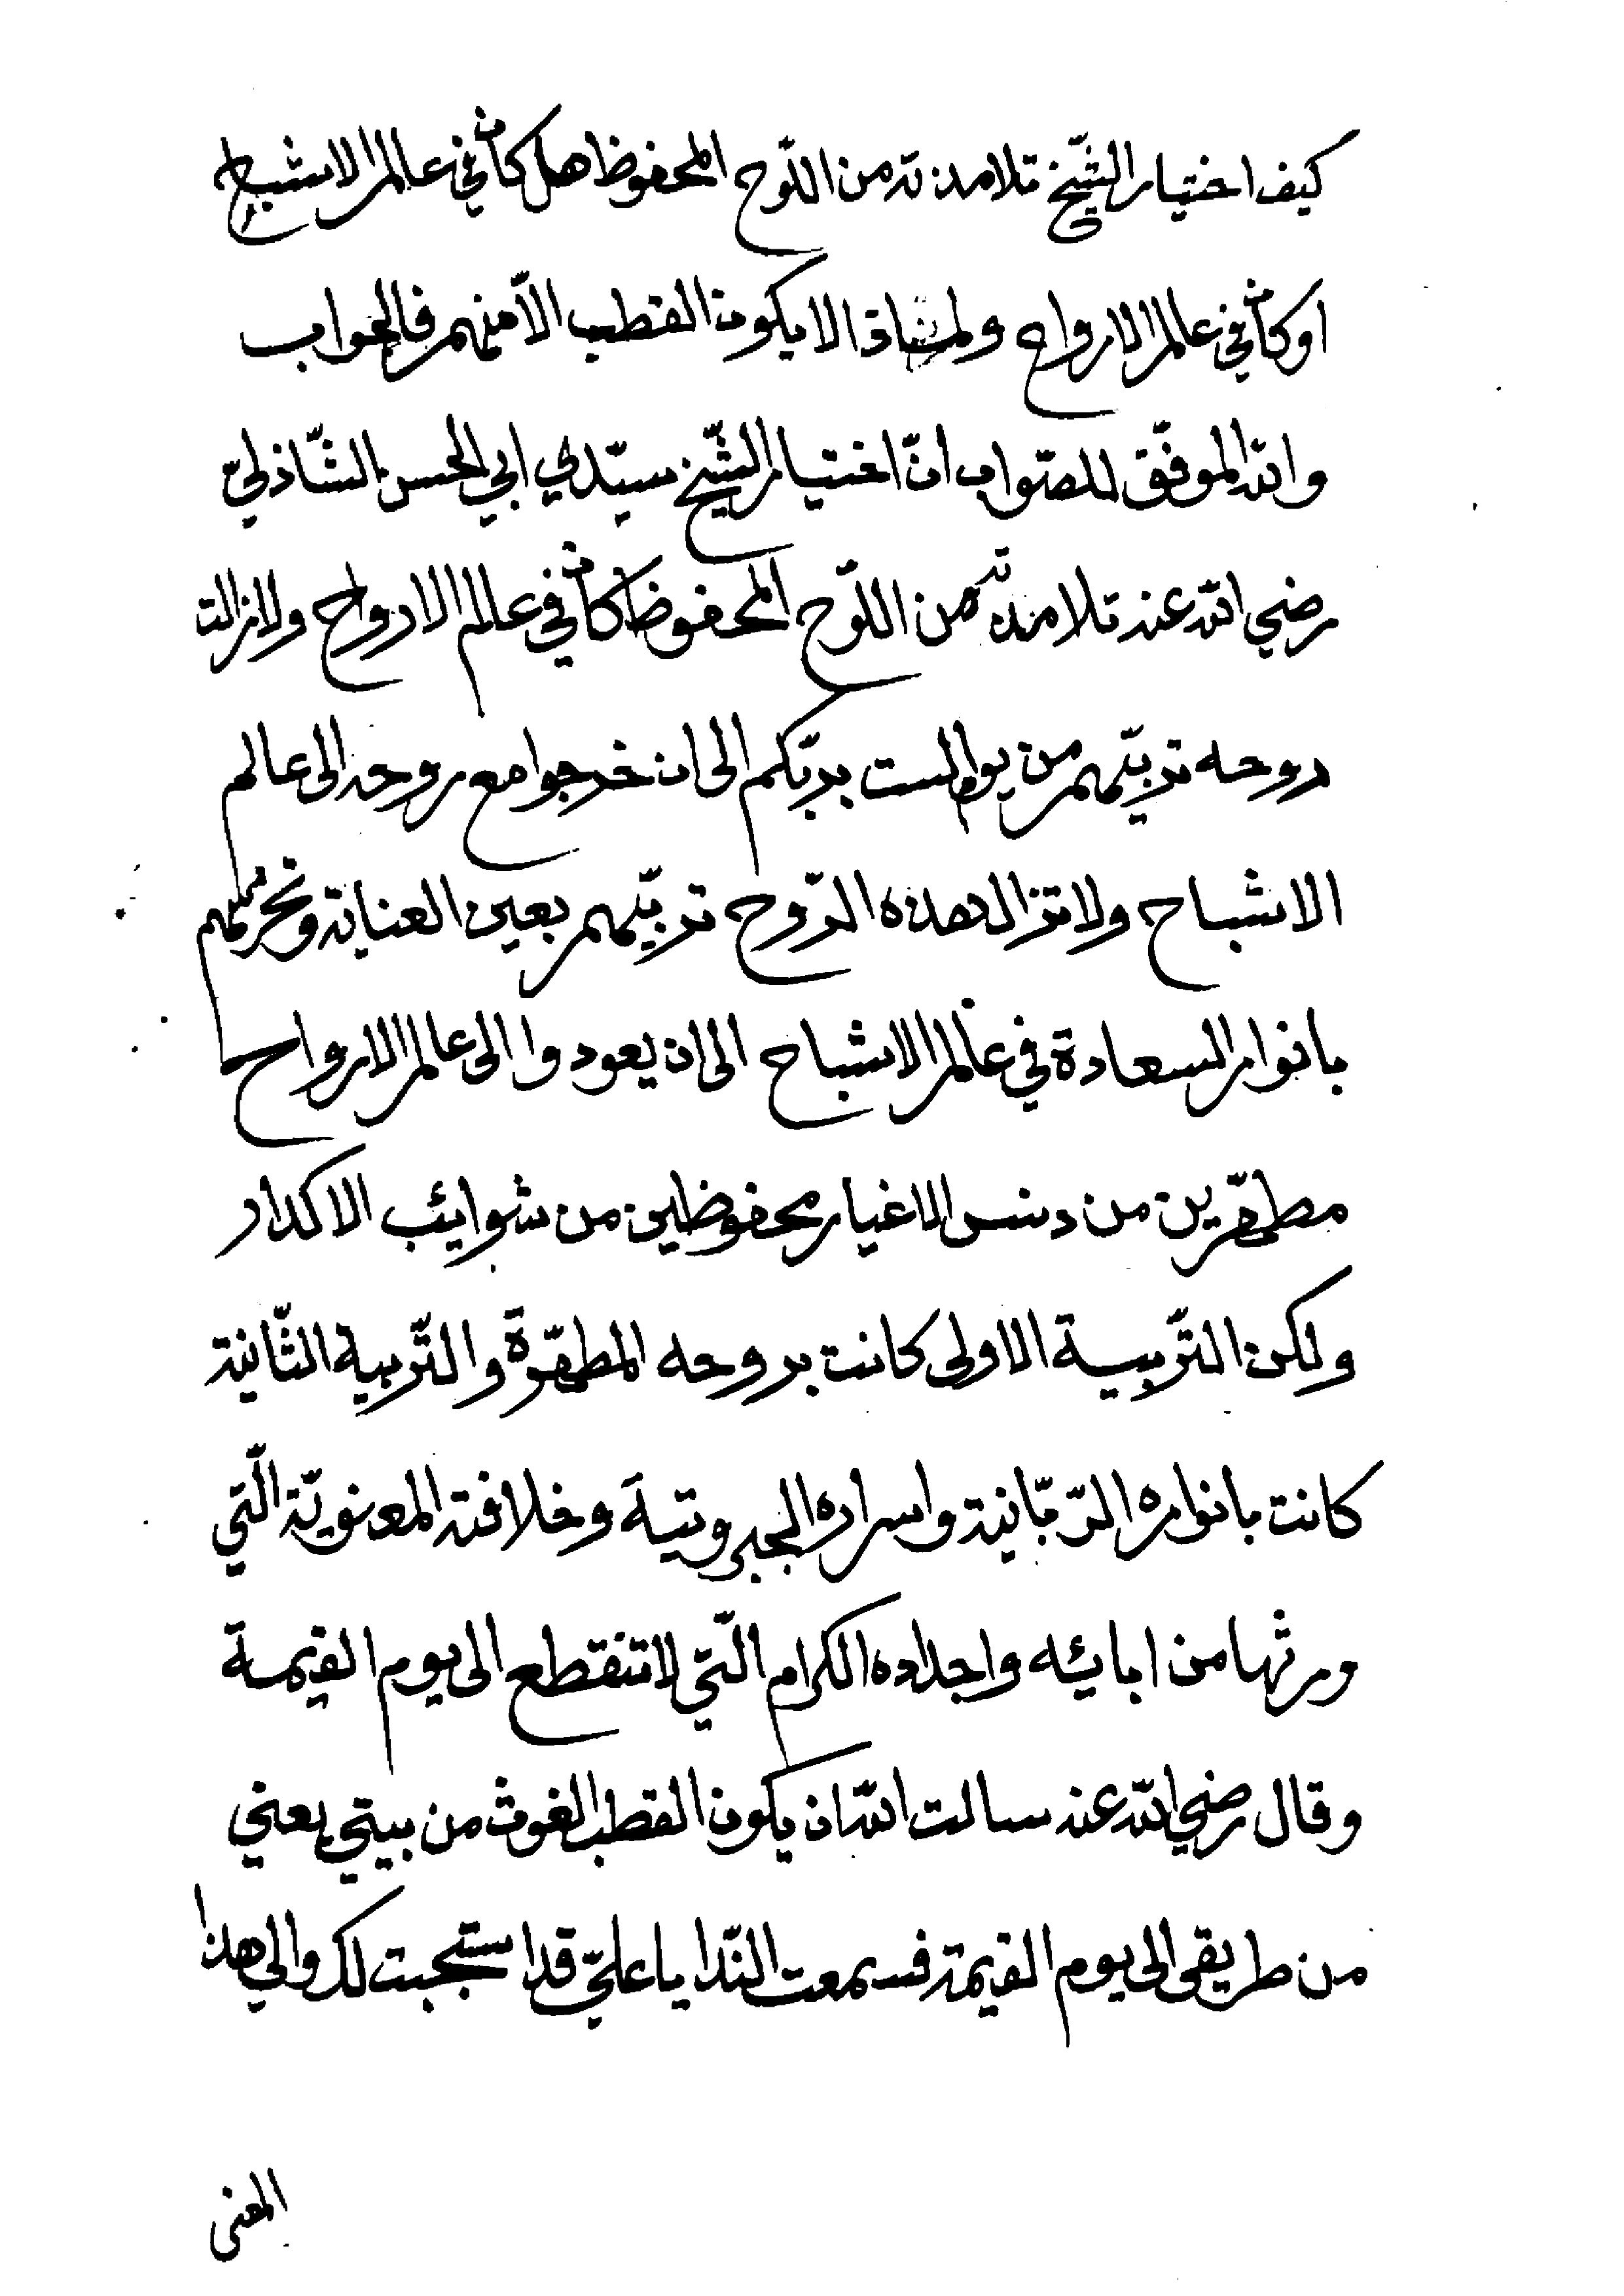 كيف اختيار الشّيخ تلامذته من اللّوح المحفوظ هل كان في عالم الاشباح
او كان في عالم الارواح ولماذا لا يكون القطب الّا منهم فالجواب
والله الموفّق للصّواب انّ اختيار الشّيخ سيّدي ابي الحسن الشّاذليّ
رضي الله عنه تلامذته من اللّوح المحفوظ كان في عالم الارواح ولازالت
روحه تربّيهم من يوم الست بربّكم الى ان خرجوا مع روحه الى عالم
الاشباح ولا تزال هذه الرّوح تربّيهم بعين العناية وتحرّكهم
بانوار السعادة في عالم الاشباح الى ان يعودوا الى عالم الارواح
مطهّرين من دنس الاغيار محفوظين من شوايئب الاكدار
ولكن التّربية الاولى كانت بروحه المطهّرة والتّربية الثّانية
كانت بانواره الرّبّانية واسراره الجبروتية وخلافته المعنويّة الّتي
ورثها من ابايئه واجداده الكرام الّتي لا تنقطع الى يوم القيمة
وقال رضي الله عنه سالت الله ان يكون القطب الغوث من بيتي يعني
من طريقى الى يوم القيمة فسمعت النّدا يا عليّ قد استجبت لك والى هذا
المعنى